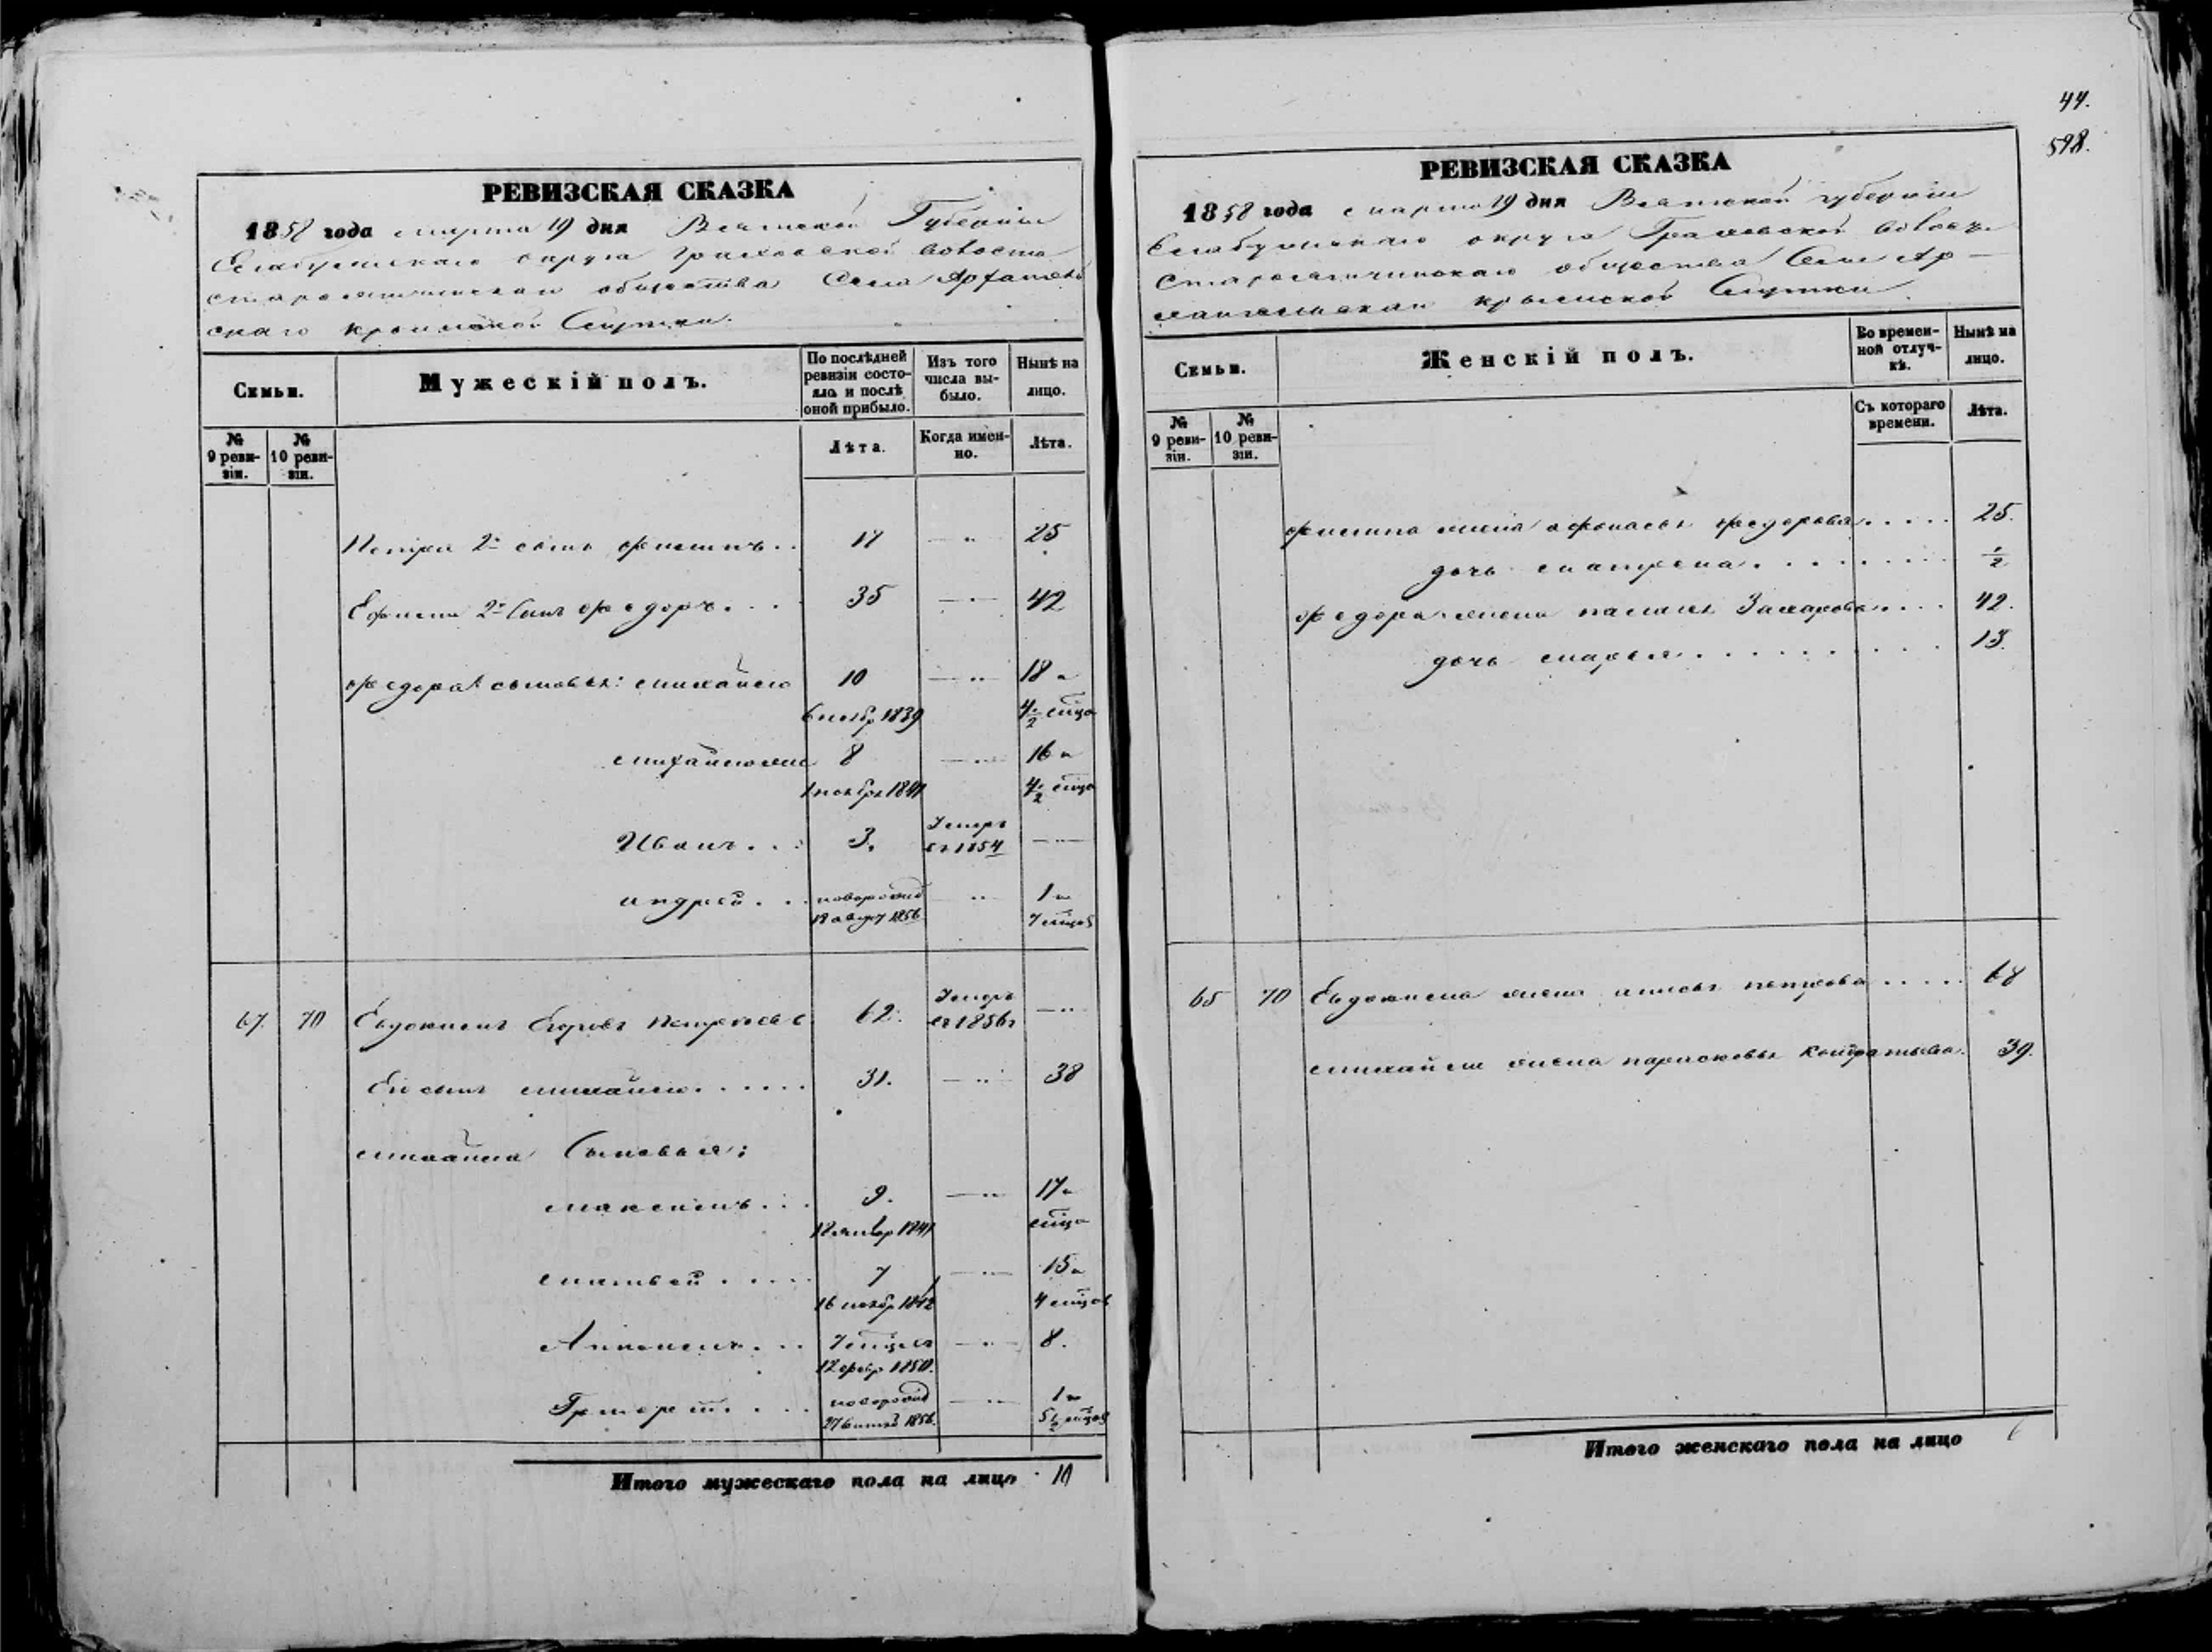 РЕВИЗСКАЯ СКАЗКА
1858 года марта 19 дня Вятской Губернии
Елабужскаго округа Граховской волости
общества Села Архангель
скаго
Семьи.
Мужескій полъ.
По послѣдней ревизіи состояло и послѣ оной прибыло.
Изъ того числа выбыло.
Нынѣ на лицо.
№ 9 ревизіи.
№ 10 ревизіи.
Лѣта.
Когда именно.
Лѣта.
Петра 2й сынъ 17 — " 25
Ефима 2й Сынъ Федоръ. . . 35 — " 42
Федора сыновья: Михайло 10 — " 18 л
6 ноябр 1839 4 1/2 мѣца
8 — " 16 л
1 ноября 1841 4 1/2 мѣца
Иванъ. . . 3. Умеръ въ 1854 — "
Андрей. . . новорожд " 1 л
18 август 1856 7 мѣцов
67. 70 Евдокимъ Егоровъ 62. Умеръ въ 1856г — "
Его сынъ Михайло. . . . . . 31. — " 38
Михайла Сыновья:
Максимъ. . . 9. — " 17 л
18 январ 1841 мѣца
Матвей. . . . . 7 — " 15 л
16 ноябр 1842 4 мѣцов
7 мѣцов — " 8.
12 февр 1850.
новорожд — " 1 л
27 1856. 5 1/2 мѣцов
Итого мужескаго пола на лицо 10
44.
598.
РЕВИЗСКАЯ СКАЗКА
1858 года марта 19 дня Вятской губернии
Елабужскаго округа Граховской волости
общества Села Ар-
Семьи.
Женскій полъ.
Во временной отлучкѣ.
Нынѣ на лицо.
№ 9 ревизіи.
№ 10 ревизіи.
Съ котораго времени.
Лѣта.
жена Афонасья Федорова. . . . . 25.
дочь Матрена. . . . . . . . 1/2
Федора жена Захарова. . . . 42.
дочь Марья. . . . . . . . . . 13.
65 70 Евдокима жена Анисья Петрова. . . . . 68
Михайла жена Парасковья Кондратьева. 39.
Итого женскаго пола на лицо 6